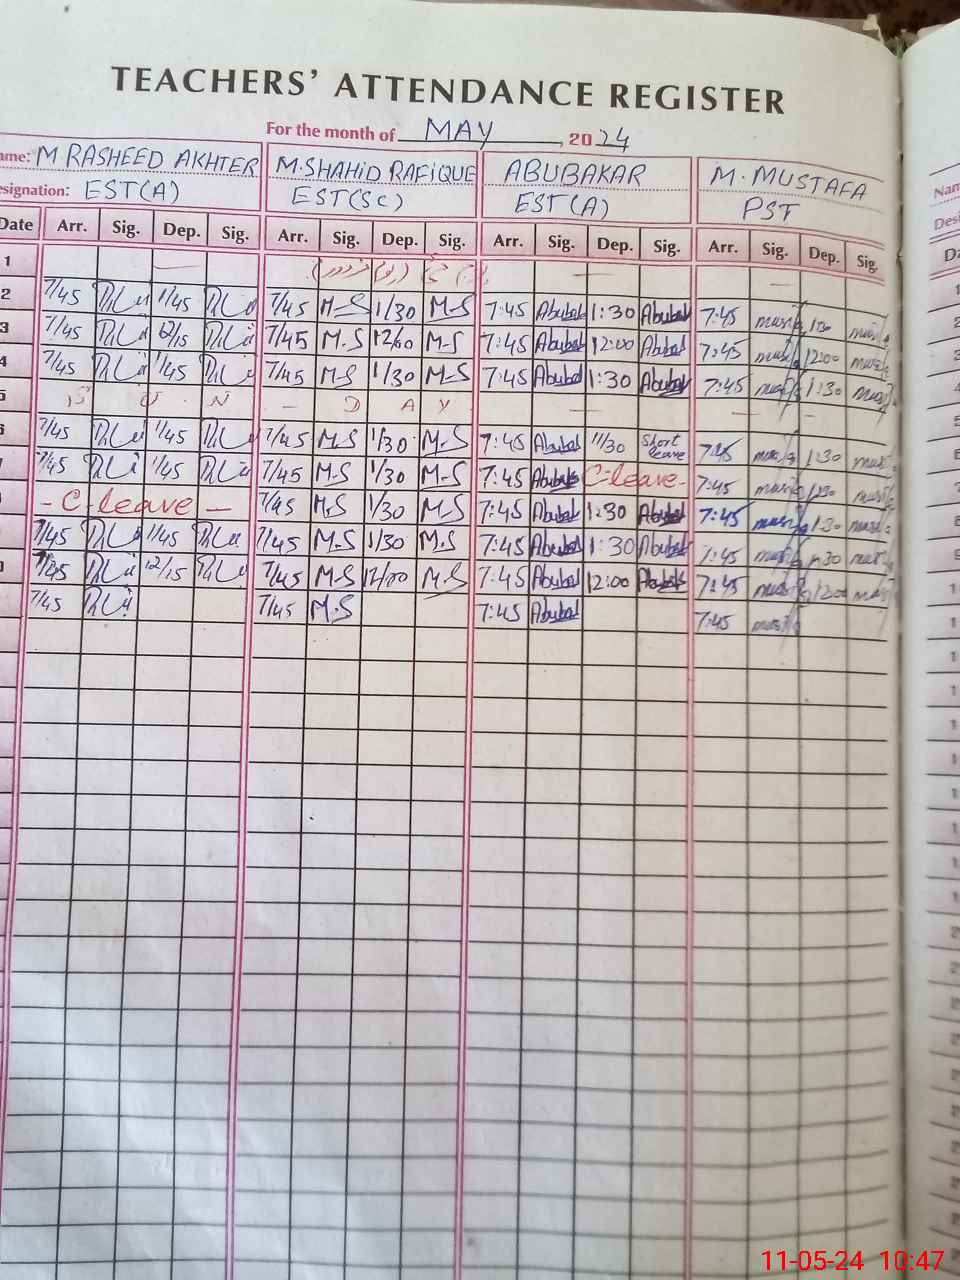 TEACHERS' ATTENDANCE REGISTER
For the month of MAY, 2024
ame: M RASHEED AKHTER M.SHAHID RAFIQUE ABUBAKAR M. MUSTAFA
esignation: EST(A) EST(SC) EST(A) PST
Date Arr. Sig. Dep. Sig. Arr. Sig. Dep. Sig. Arr. Sig. Dep. Sig. Arr. Sig. Dep. Sig.
1
2 7/45 1/45 7/45 M-S 1/30 M-S 7:45 Abubak 1:30 Abubak 7:45 1:30
3 7/45 12/15 7/45 M.S 12/00 M-S 7:45 Abubak 12:00 Abubak 7:45 12:00
4 7/45 1/45 7/45 M-S 1/30 M-S 7:45 Abubak 1:30 Abubak 7:45 1:30
5 S U N - D A Y
6 7/45 1/45 7/45 M.S 1/30 M-S 7:45 Abubak 11/30 Short leave 7:45 1:30
7/45 1/45 7/45 M-S 1/30 M-S 7:45 Abubak C-leave- 7:45 1:30
- C-leave - 7/45 M.S 1/30 M-S 7:45 Abubak 1:30 Abubak 7:45 1:30
7/45 1/45 7/45 M-S 1/30 M.S 7:45 Abubak 1:30 Abubak 7:45 1:30
7/45 12/15 7/45 M-S 12/00 M-S 7:45 Abubak 12:00 Abubak 7:45 12:00
7/45 7/45 M-S 7:45 Abubak 7:45
Nam
Desi
Da
11-05-24 10:47